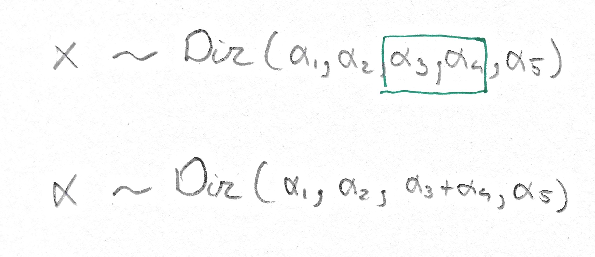 x ~ Dir(α₁, α₂, α₃, α₄, α₅)
x ~ Dir(α₁, α₂, α₃+α₄, α₅)